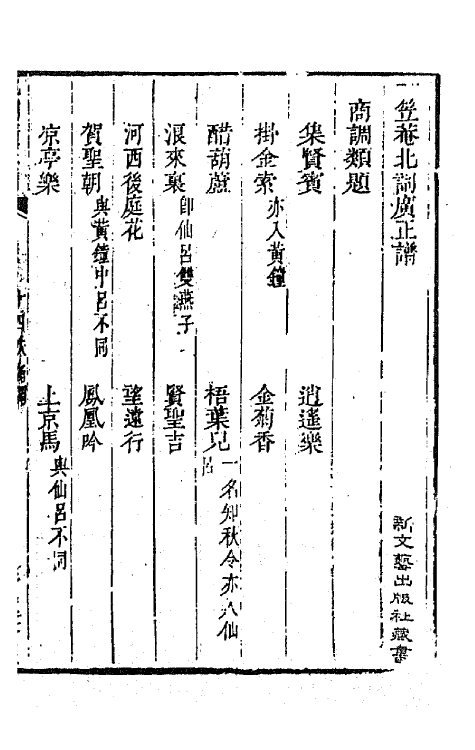 笠菴北詞廣正譜
新文藝出版社藏書
商調類題
集賢賓　逍遙樂
掛金索亦入黃鐘　金菊香
醋葫蘆　梧葉兒一名知秋令亦入仙呂
浪來裏即仙呂雙燕子　賢聖吉
河西後庭花　望遠行
賀聖朝與黃鐘中呂不同　鳳凰吟
凉亭樂　上京馬與仙呂不同